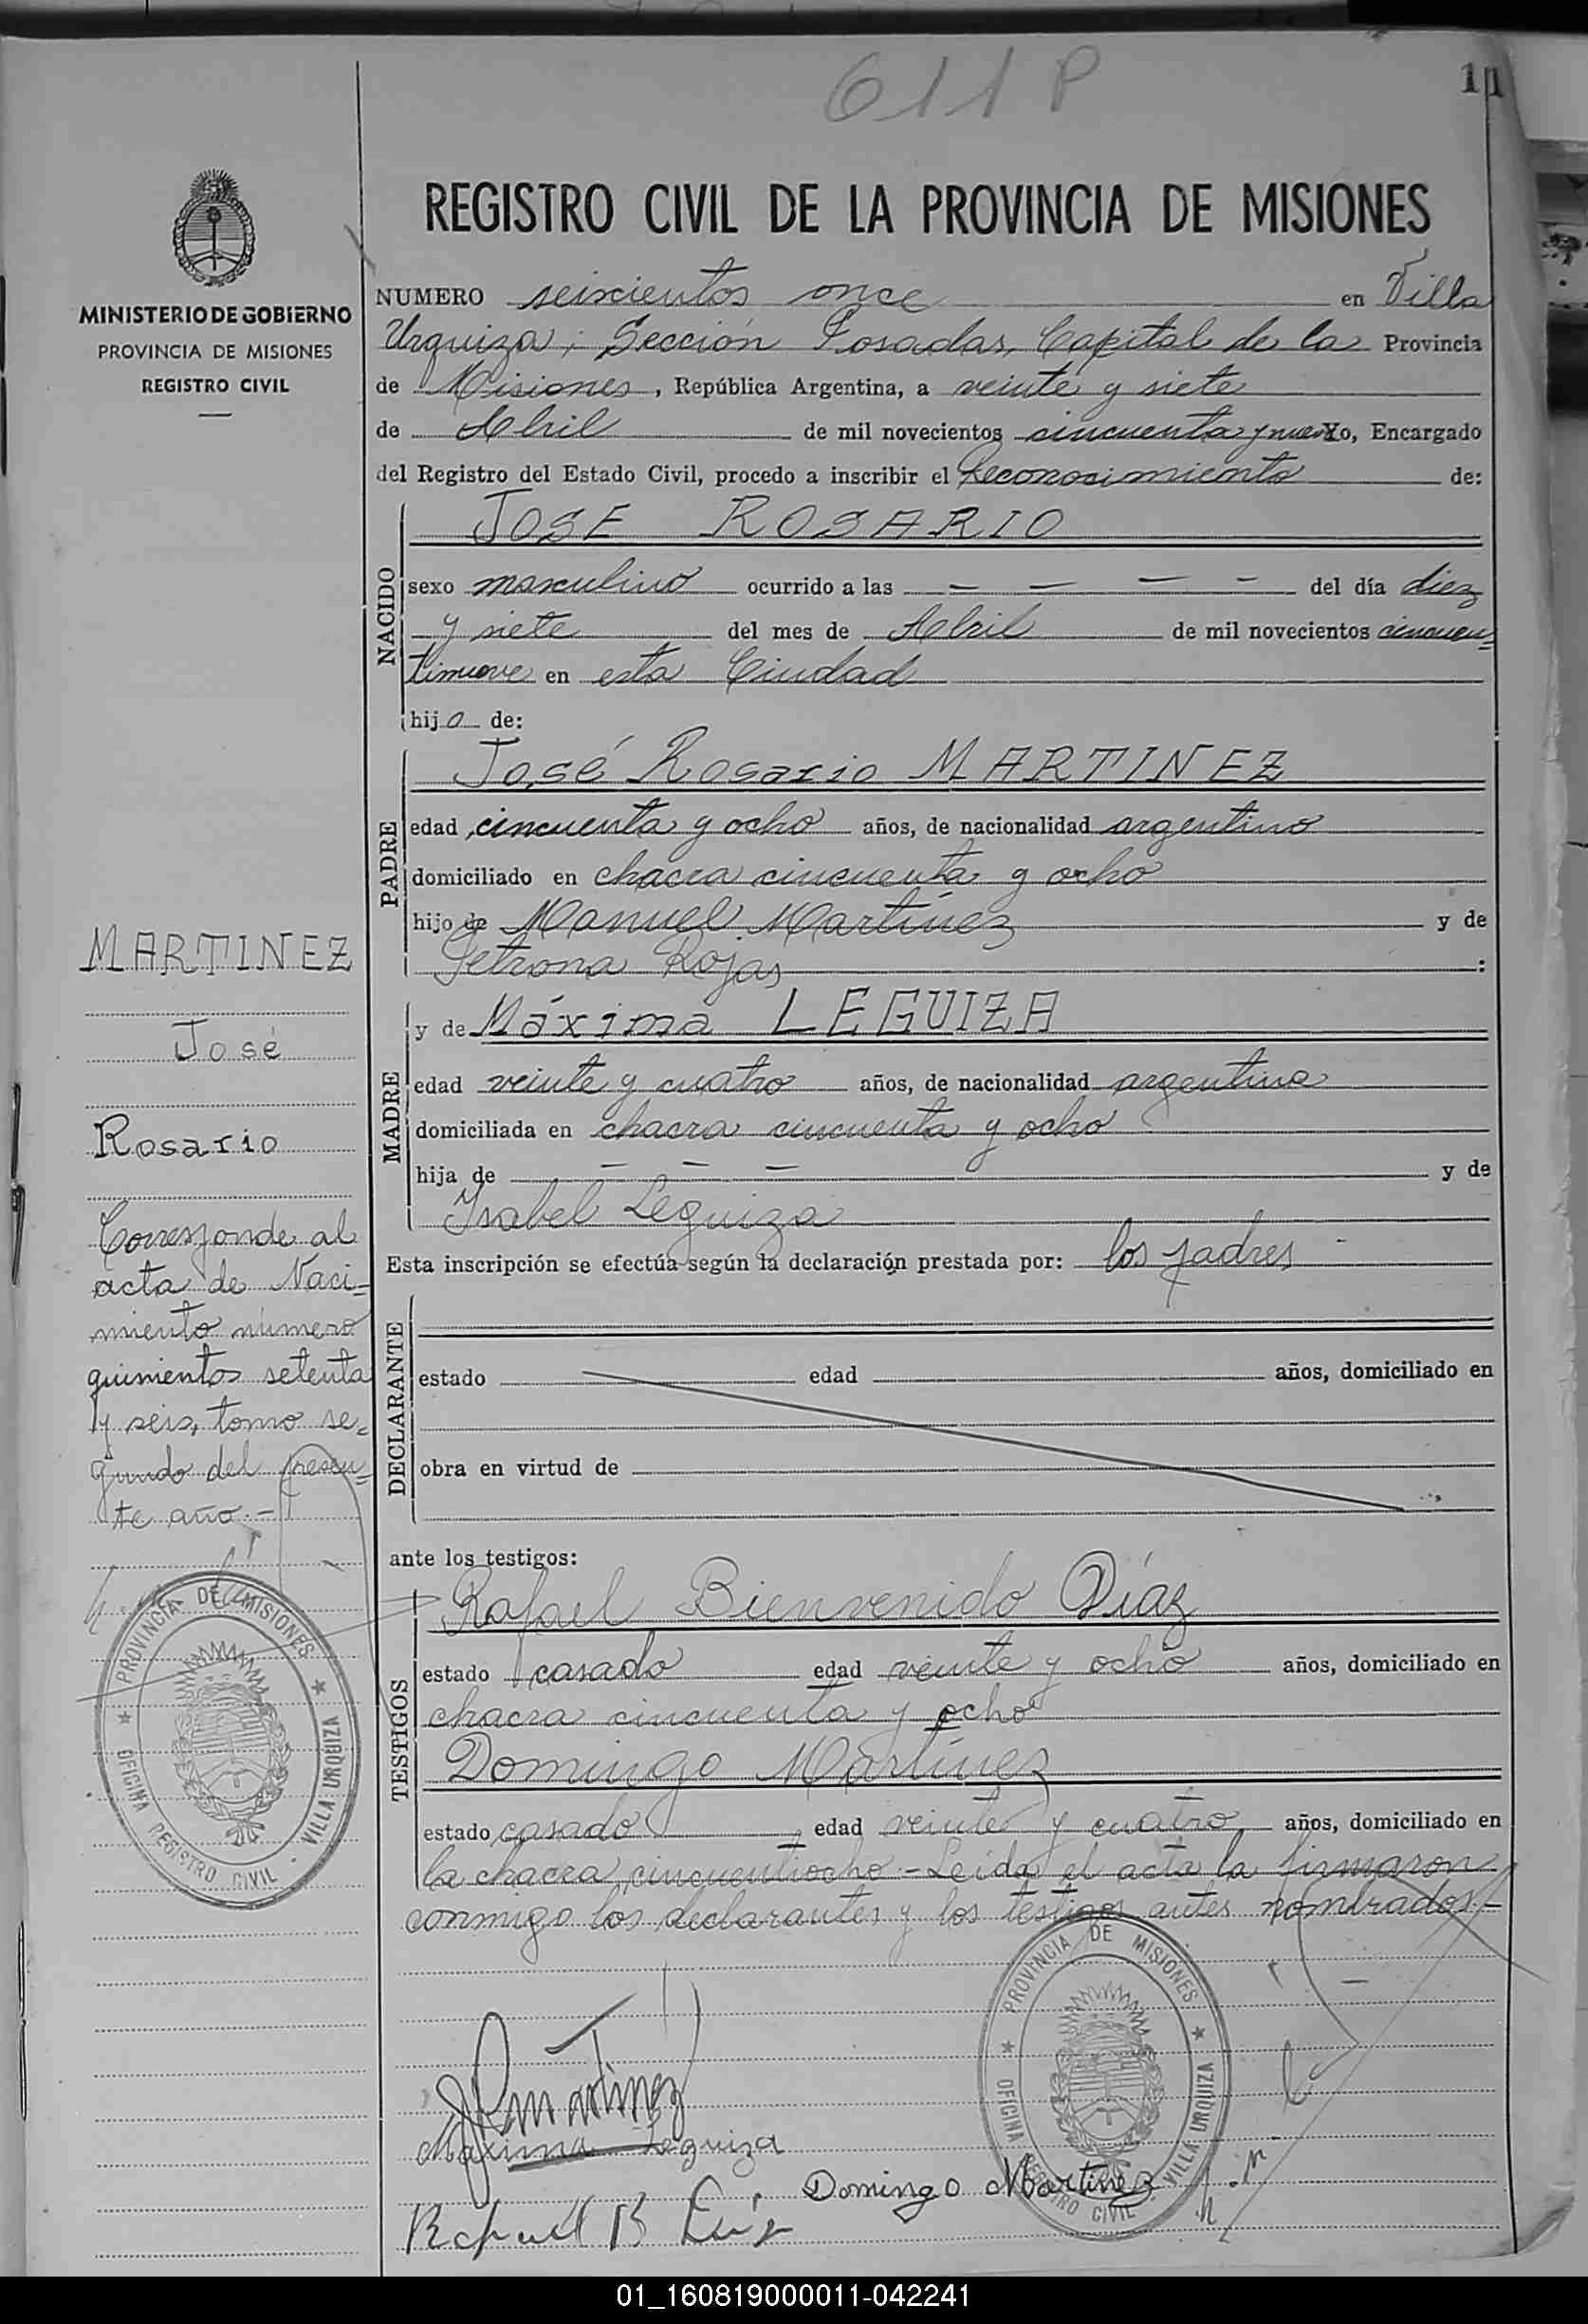 611 P
11
MINISTERIO DE GOBIERNO
PROVINCIA DE MISIONES
REGISTRO CIVIL
REGISTRO CIVIL DE LA PROVINCIA DE MISIONES
NUMERO seiscientos once en Villa
Urquiza, Sección Posadas, Capital de la Provincia
de Misiones, República Argentina, a veinte y siete
de Abril de mil novecientos cincuenta y nueve Yo, Encargado
del Registro del Estado Civil, procedo a inscribir el Reconocimiento de:
NACIDO
JOSE ROSARIO
sexo masculino ocurrido a las — — — — del día diez
y siete del mes de Abril de mil novecientos cincuen=
tinueve en esta Ciudad
hijo de:
PADRE
José Rosario MARTINEZ
edad cincuenta y ocho años, de nacionalidad argentino
domiciliado en chacra cincuenta y ocho
hijo de Manuel Martínez y de
Petrona Rojas :
MADRE
y de Máxima LEGUIZA
edad veinte y cuatro años, de nacionalidad argentina
domiciliada en chacra cincuenta y ocho
hija de — — — y de
Isabel Leguiza
Esta inscripción se efectúa según la declaración prestada por: los padres -
DECLARANTE
estado edad años, domiciliado en
obra en virtud de
ante los testigos:
TESTIGOS
Rafael Bienvenido Díaz
estado casado edad veinte y ocho años, domiciliado en
chacra cincuenta y ocho
Domingo Martínez
estado casado edad veinte y cuatro, años, domiciliado en
la chacra cincuentiocho.- Leida el acta la firmaron
conmigo los declarantes y los testigos antes nombrados.-
MARTINEZ
José
Rosario
Corresponde al
acta de Naci-
miento número
quinientos setenta
y seis, tomo se=
gundo del presen=
te año.-
PROVINCIA DE MISIONES
OFICINA REGISTRO CIVIL - VILLA URQUIZA
PROVINCIA DE MISIONES
OFICINA REGISTRO CIVIL - VILLA URQUIZA
JRMartinez
Maxima Leguiza
Domingo Martinez
Rafael B Díaz
01_160819000011-042241